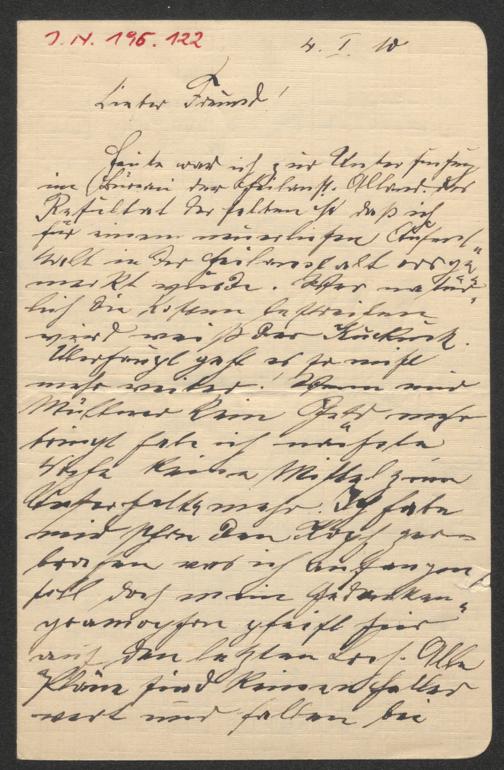 J. N. 196.122
4. I. 10
Lieber Freund!
Heute war ich zur Untersuchung
im Bureau der Heilanst. Alland. Das
Resultat derselben ist daß ich
für einen neuerlichen Aufent-
halt in der Heilanstalt vorge-
merkt wurde. Wer natür-
lich die Kosten bestreiten
wird weiß der Kuckuck.
Überhaupt geht es so nicht
mehr weiter! Wenn mir
Müllner kein Geld mehr
bringt habe ich nächste
Woche keine Mittel zum
Unterhalt mehr. Ich habe
mir schon den Kopf zer-
brochen was ich anfangen
soll doch mein Gedanken-
gramophon pfeift hier
auf den letzten Loch. Alle
Pläne sind keinen Heller
wert und fallen bei